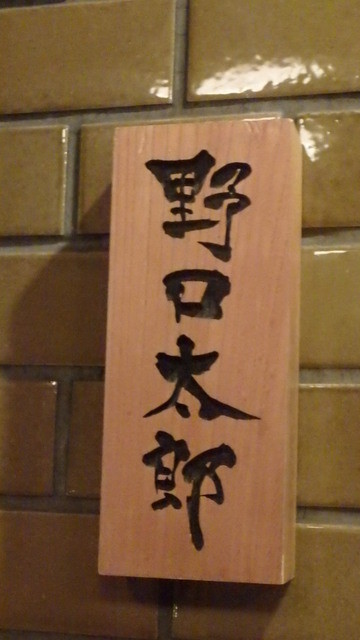 野口太郎